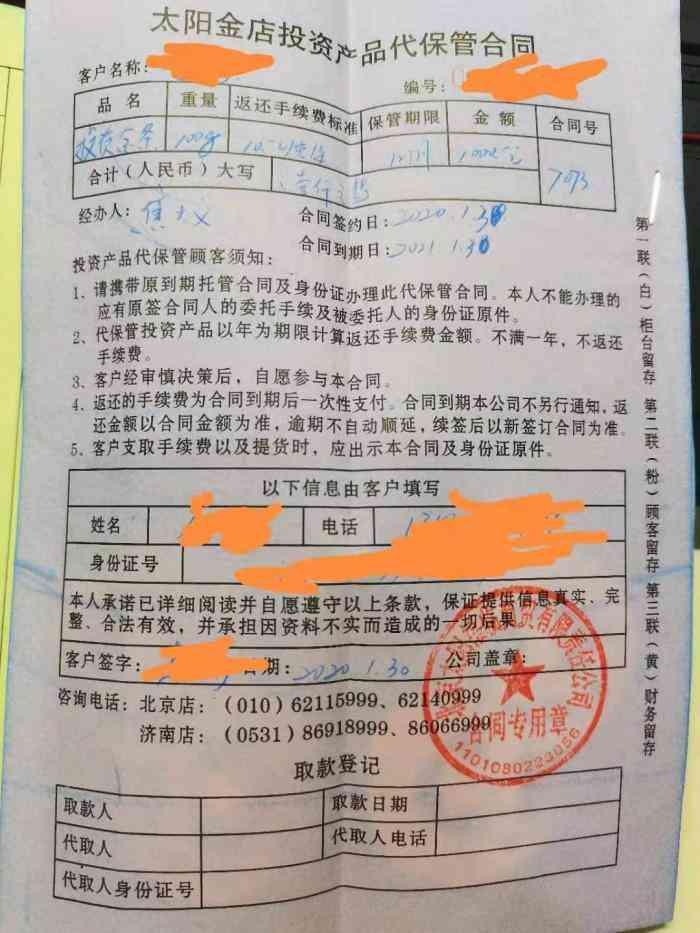 太阳金店投资产品代保管合同
客户名称：
编号：
品名 重量 返还手续费标准 保管期限 金额 合同号
投资金条 100g 12个月 7093
合计（人民币）大写
经办人：
合同签约日：2020.1.30
合同到期日：2021.1.30
投资产品代保管顾客须知：
1、请携带原到期托管合同及身份证办理此代保管合同。本人不能办理的
应有原签合同人的委托手续及被委托人的身份证原件。
2、代保管投资产品以年为期限计算返还手续费金额。不满一年，不返还
手续费。
3、客户经审慎决策后，自愿参与本合同。
4、返还的手续费为合同到期后一次性支付。合同到期本公司不另行通知，返
还金额以合同金额为准，逾期不自动顺延，续签后以新签订合同为准。
5、客户支取手续费以及提货时，应出示本合同及身份证原件。
以下信息由客户填写
姓名 电话
身份证号
本人承诺已详细阅读并自愿遵守以上条款，保证提供信息真实、完
整、合法有效，并承担因资料不实而造成的一切后果。
客户签字： 日期：2020.1.30 公司盖章：
咨询电话：北京店：（010）62115999、62140999
济南店：（0531）86918999、86066999
有限责任公司
合同专用章
1101080223056
取款登记
取款人 取款日期
代取人 代取人电话
代取人身份证号
第一联（白）柜台留存 第二联（粉）顾客留存 第三联（黄）财务留存